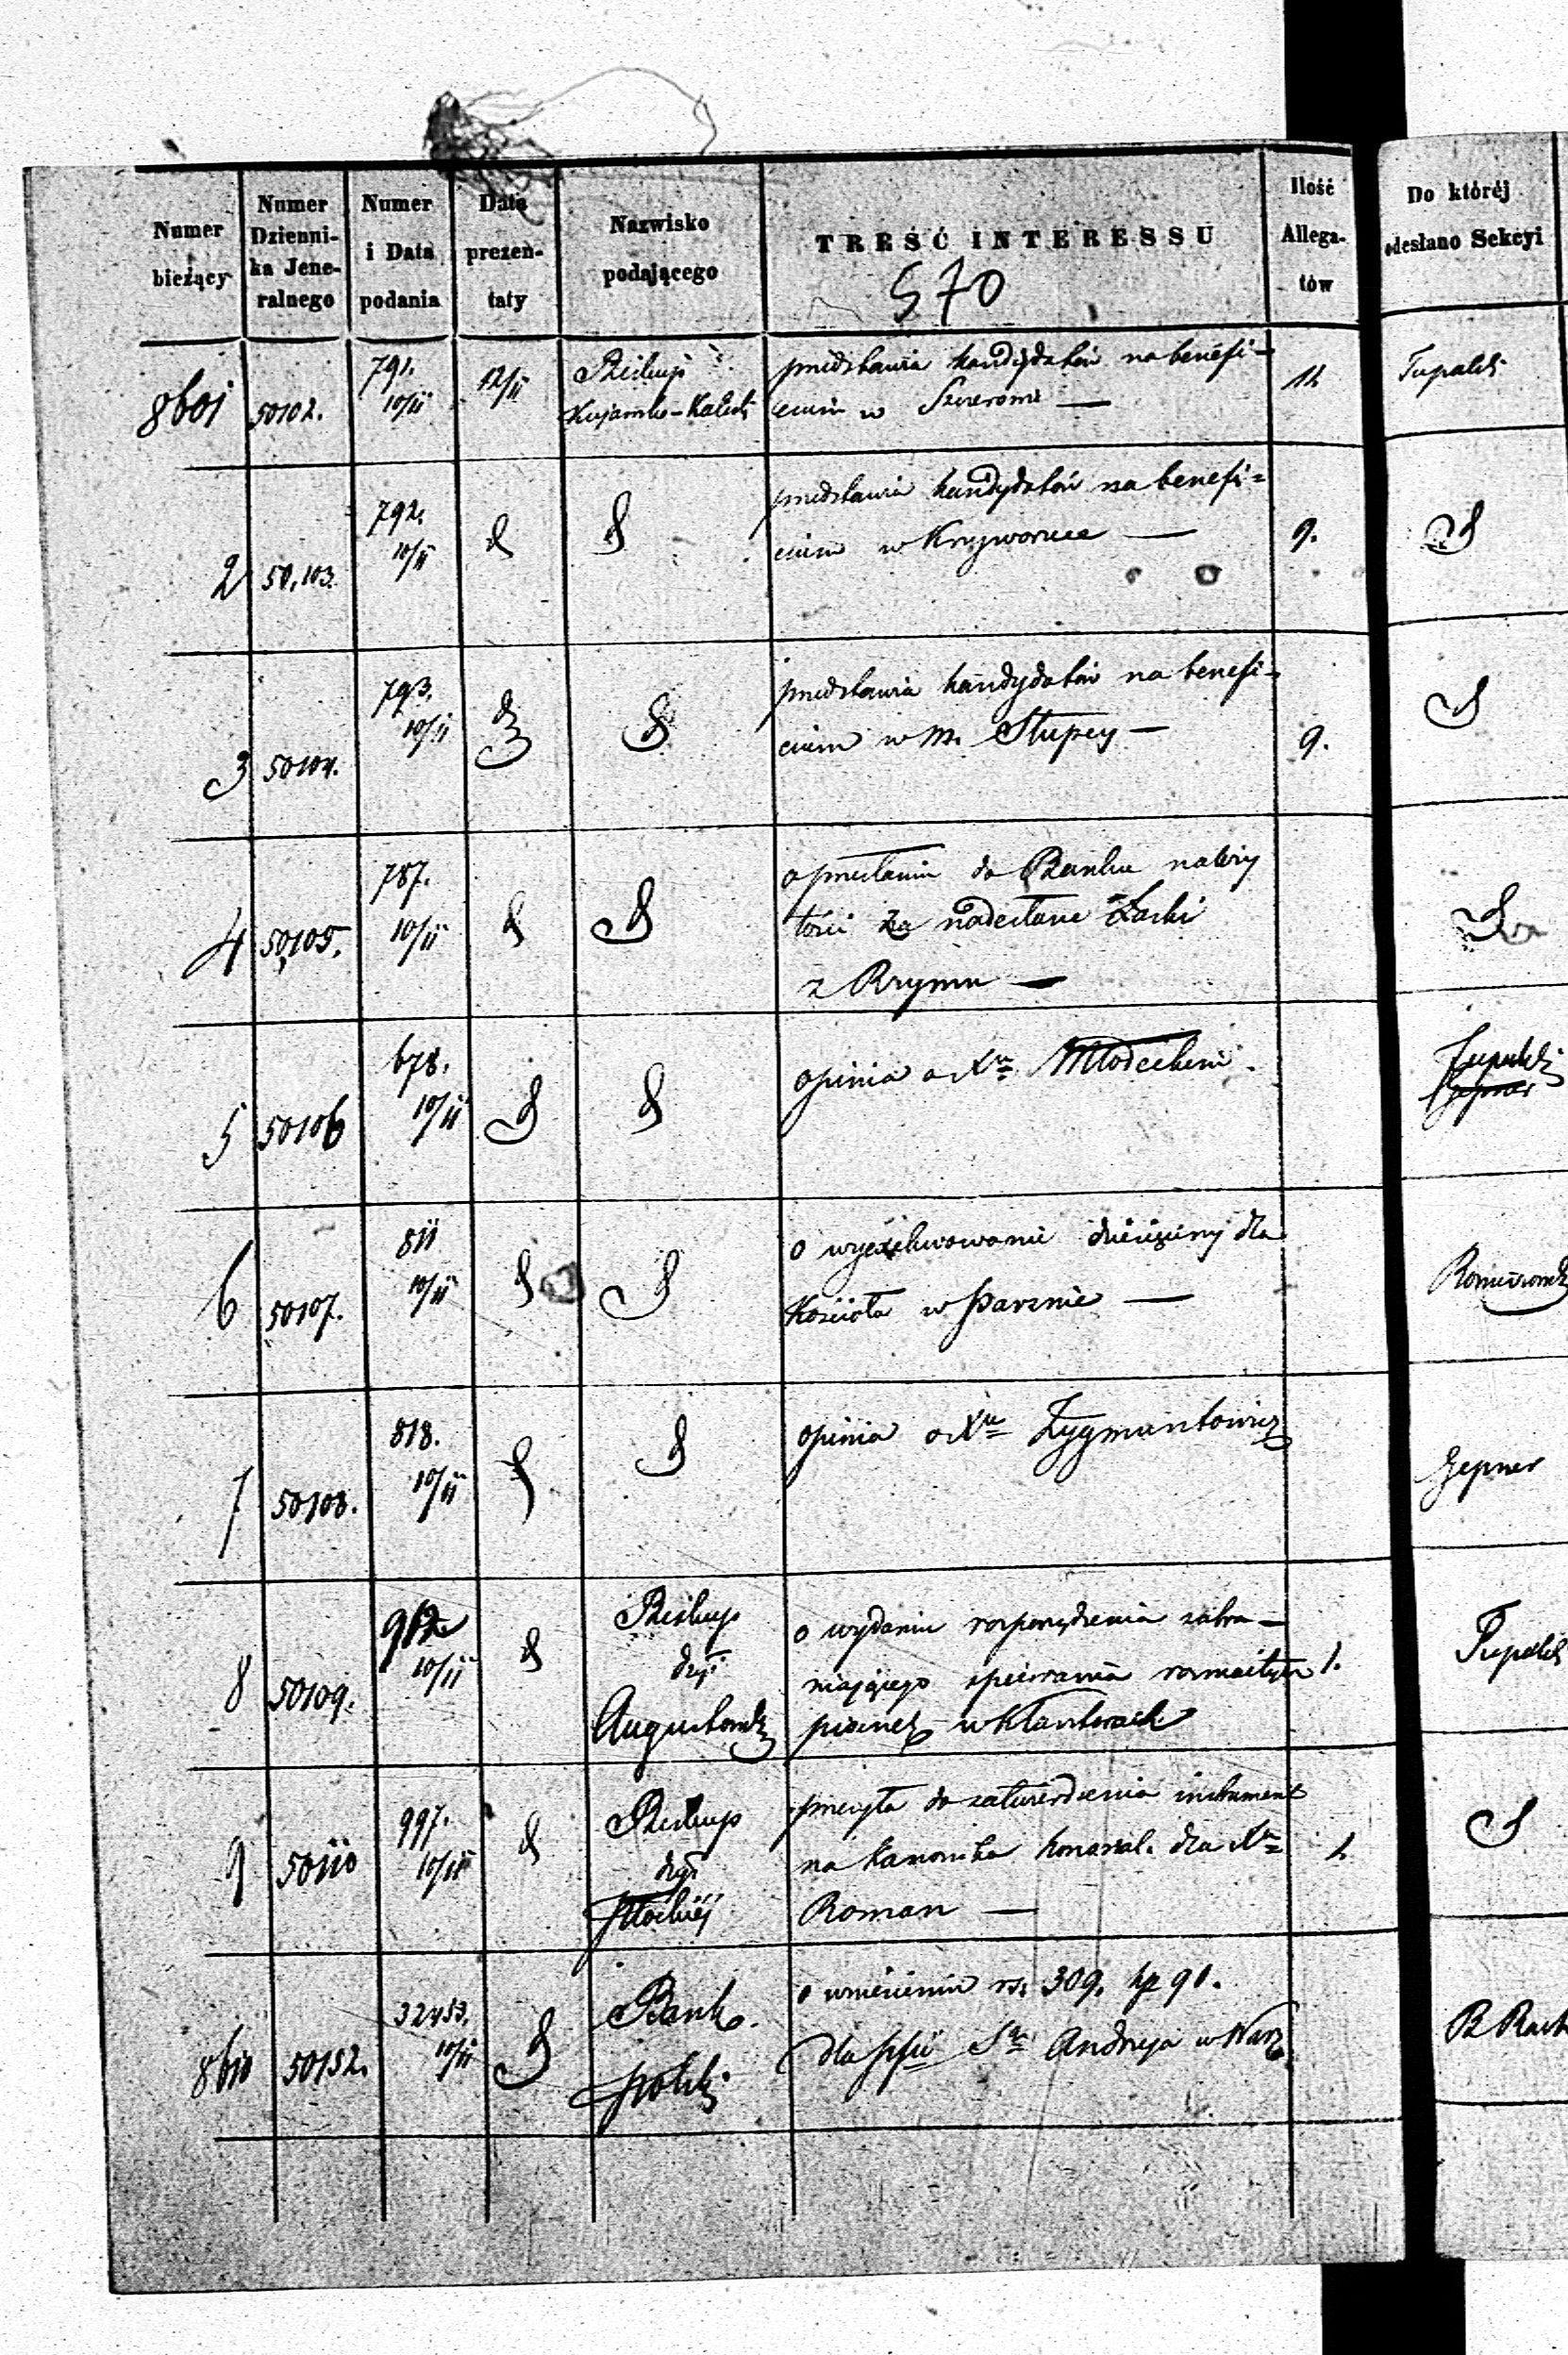 Numer bieżący | Numer Dziennika Jeneralnego | Numer i Data podania | Data prezentaty | Nazwisko podającego | TREŚĆ INTERESSU | Ilość Allegatów | Do której odesłano Sekcyi
570
8601 | 50102. | 791. 10/11 | 12/11 | Biskup Kujawsko-Kaliski | przedstawia kandydatów na benefi-
cium w — | 12 | Tupalski
2 | 50,103. | 792. 10/11 | d | d | przedstawia kandydatów na benefi=
cium w Krzyworzece — | 9. | d
3 | 50104. | 793. 10/11 | d | d | przedstawia kandydatów na benefi-
cium w m. Słupcy — | 9. | d
4 | 50,105. | 787. 10/11 | d | d | o przesłanie do Banku należy
tości za nadesłane Łaski
z Rzymu — | d
5 | 50106 | 678. 10/11 | d | d | opinia o Xu Młodeckim. | Tupalski
Gepner
6 | 50107. | 811 10/11 | d | d | o wyexekwowanie dziesięciny dla
Kościoła w Parznie —
7 | 50108. | 818. 10/11 | d | d | opinia o Xu Zygmuntowicz | Gepner
8 | 50109. | 10/11 | d | Biskup dyi Augustowski | o wydanie rozporządzenia zabra-
niającego śpiewania rozmaitych
piosnek w Klasztorach | 1. | Tupalski
9 | 50110 | 997. 10/11 | d | Biskup dyi Płockiéj | przesyła do zatwierdzenia instrument
na kanonika honorowal. dla Xa
Roman — | 1. | d
8610 | 50152. | 32453. 10/11 | d | Bank Polski | o wniesieniu rs. 309. kp 91.
dla Sgo Andrzeja w Warz